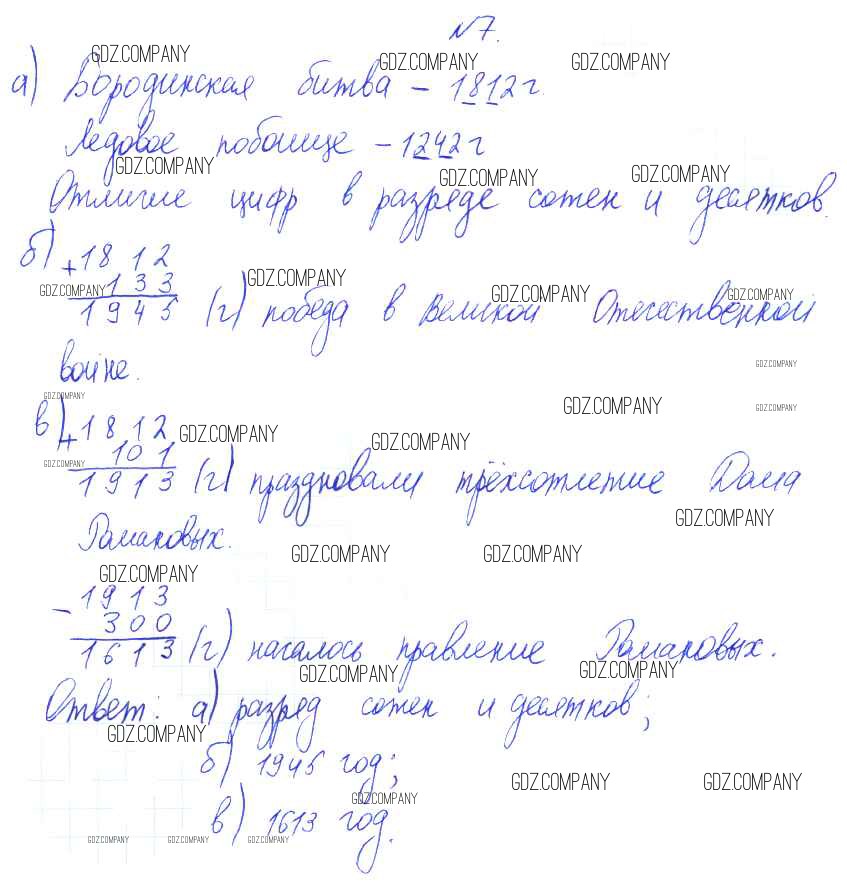 №7.
GDZ.COMPANY
а) Бородинская битва – 1812 г.
GDZ.COMPANY GDZ.COMPANY
Ледовое побоище – 1242 г
GDZ.COMPANY GDZ.COMPANY GDZ.COMPANY
Отличие цифр в разряде сотен и десятков.
б) +1812
GDZ.COMPANY 133 GDZ.COMPANY GDZ.COMPANY GDZ.COMPANY
1945 (г) победа в Великой Отечественной
войне.
GDZ.COMPANY
GDZ.COMPANY GDZ.COMPANY GDZ.COMPANY
в) +1812 GDZ.COMPANY GDZ.COMPANY
GDZ.COMPANY 101
1913 (г) праздновали трёхсотлетие Дома
GDZ.COMPANY
Романовых.
GDZ.COMPANY GDZ.COMPANY
GDZ.COMPANY
–1913
300
1613 (г) началось правление Романовых.
GDZ.COMPANY GDZ.COMPANY
Ответ: а) разряд сотен и десятков;
GDZ.COMPANY
б) 1945 год;
GDZ.COMPANY GDZ.COMPANY GDZ.COMPANY
в) 1613 год.
GDZ.COMPANY GDZ.COMPANY GDZ.COMPANY